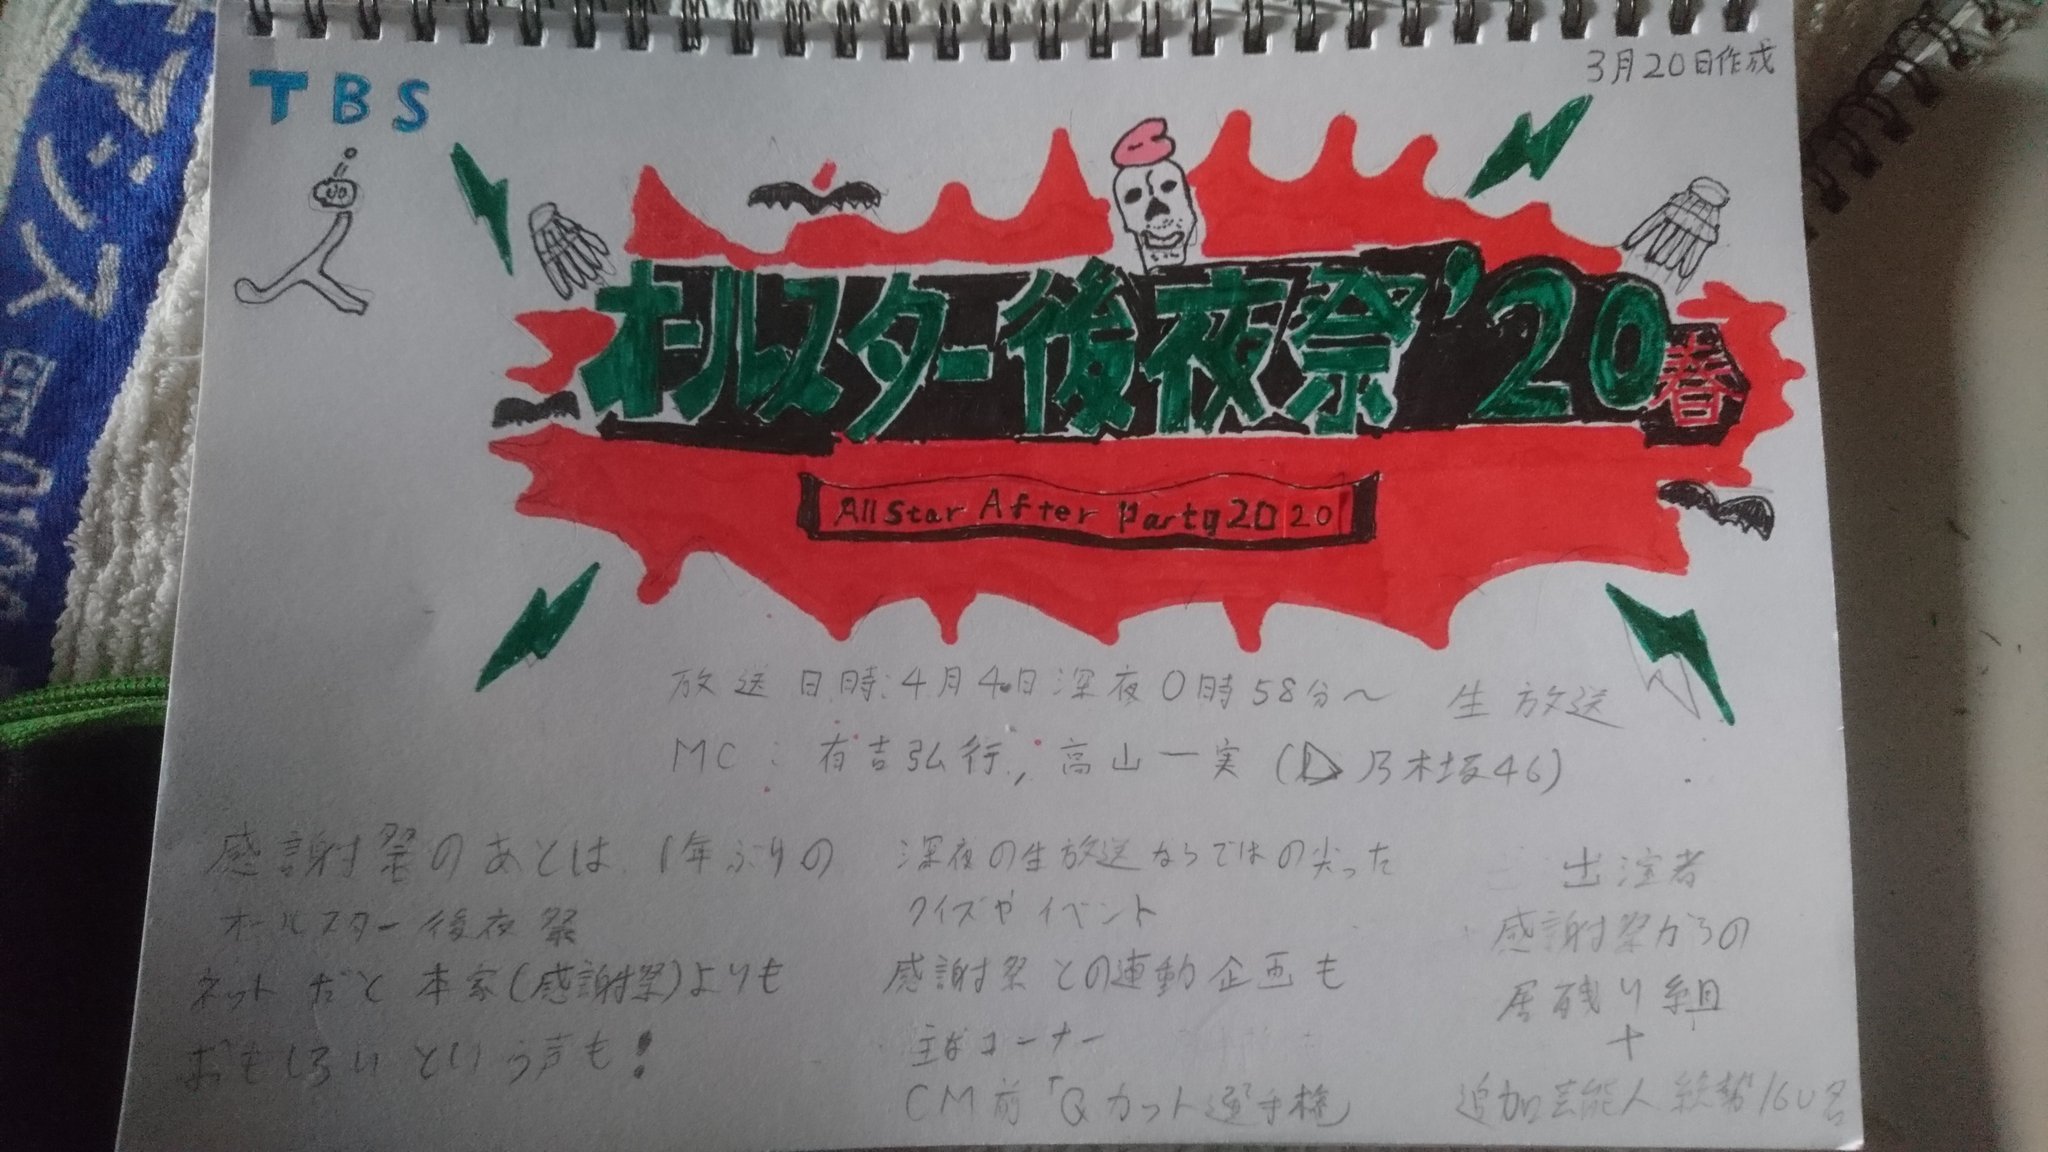 TBS
3月20日作成
オールスター後夜祭'20
春
All Star After Party 2020
放送日時:4月4日深夜0時58分〜 生放送
MC:有吉弘行,高山一実(乃木坂46)
感謝祭のあとは1年ぶりの
オールスター後夜祭
ネットだと本家(感謝祭)よりも
おもしろいという声も!
深夜の生放送ならではの尖った
クイズやイベント
感謝祭との連動企画も
主なコーナー
CM前「Qカット選手権」
出演者
感謝祭からの
居残り組
+
追加芸能人総勢160名